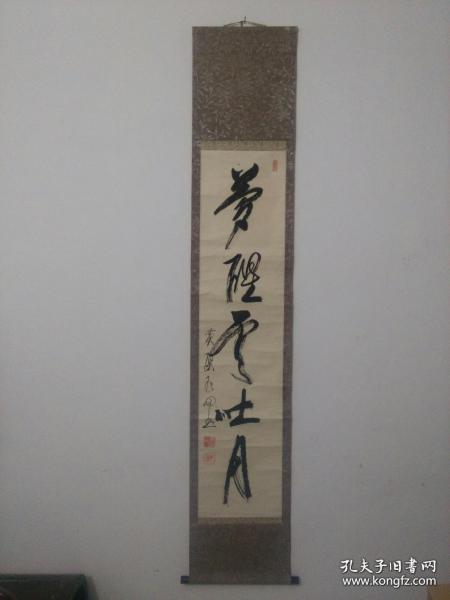 夢醒雲吐月
孔夫子旧书网
www.kongfz.com